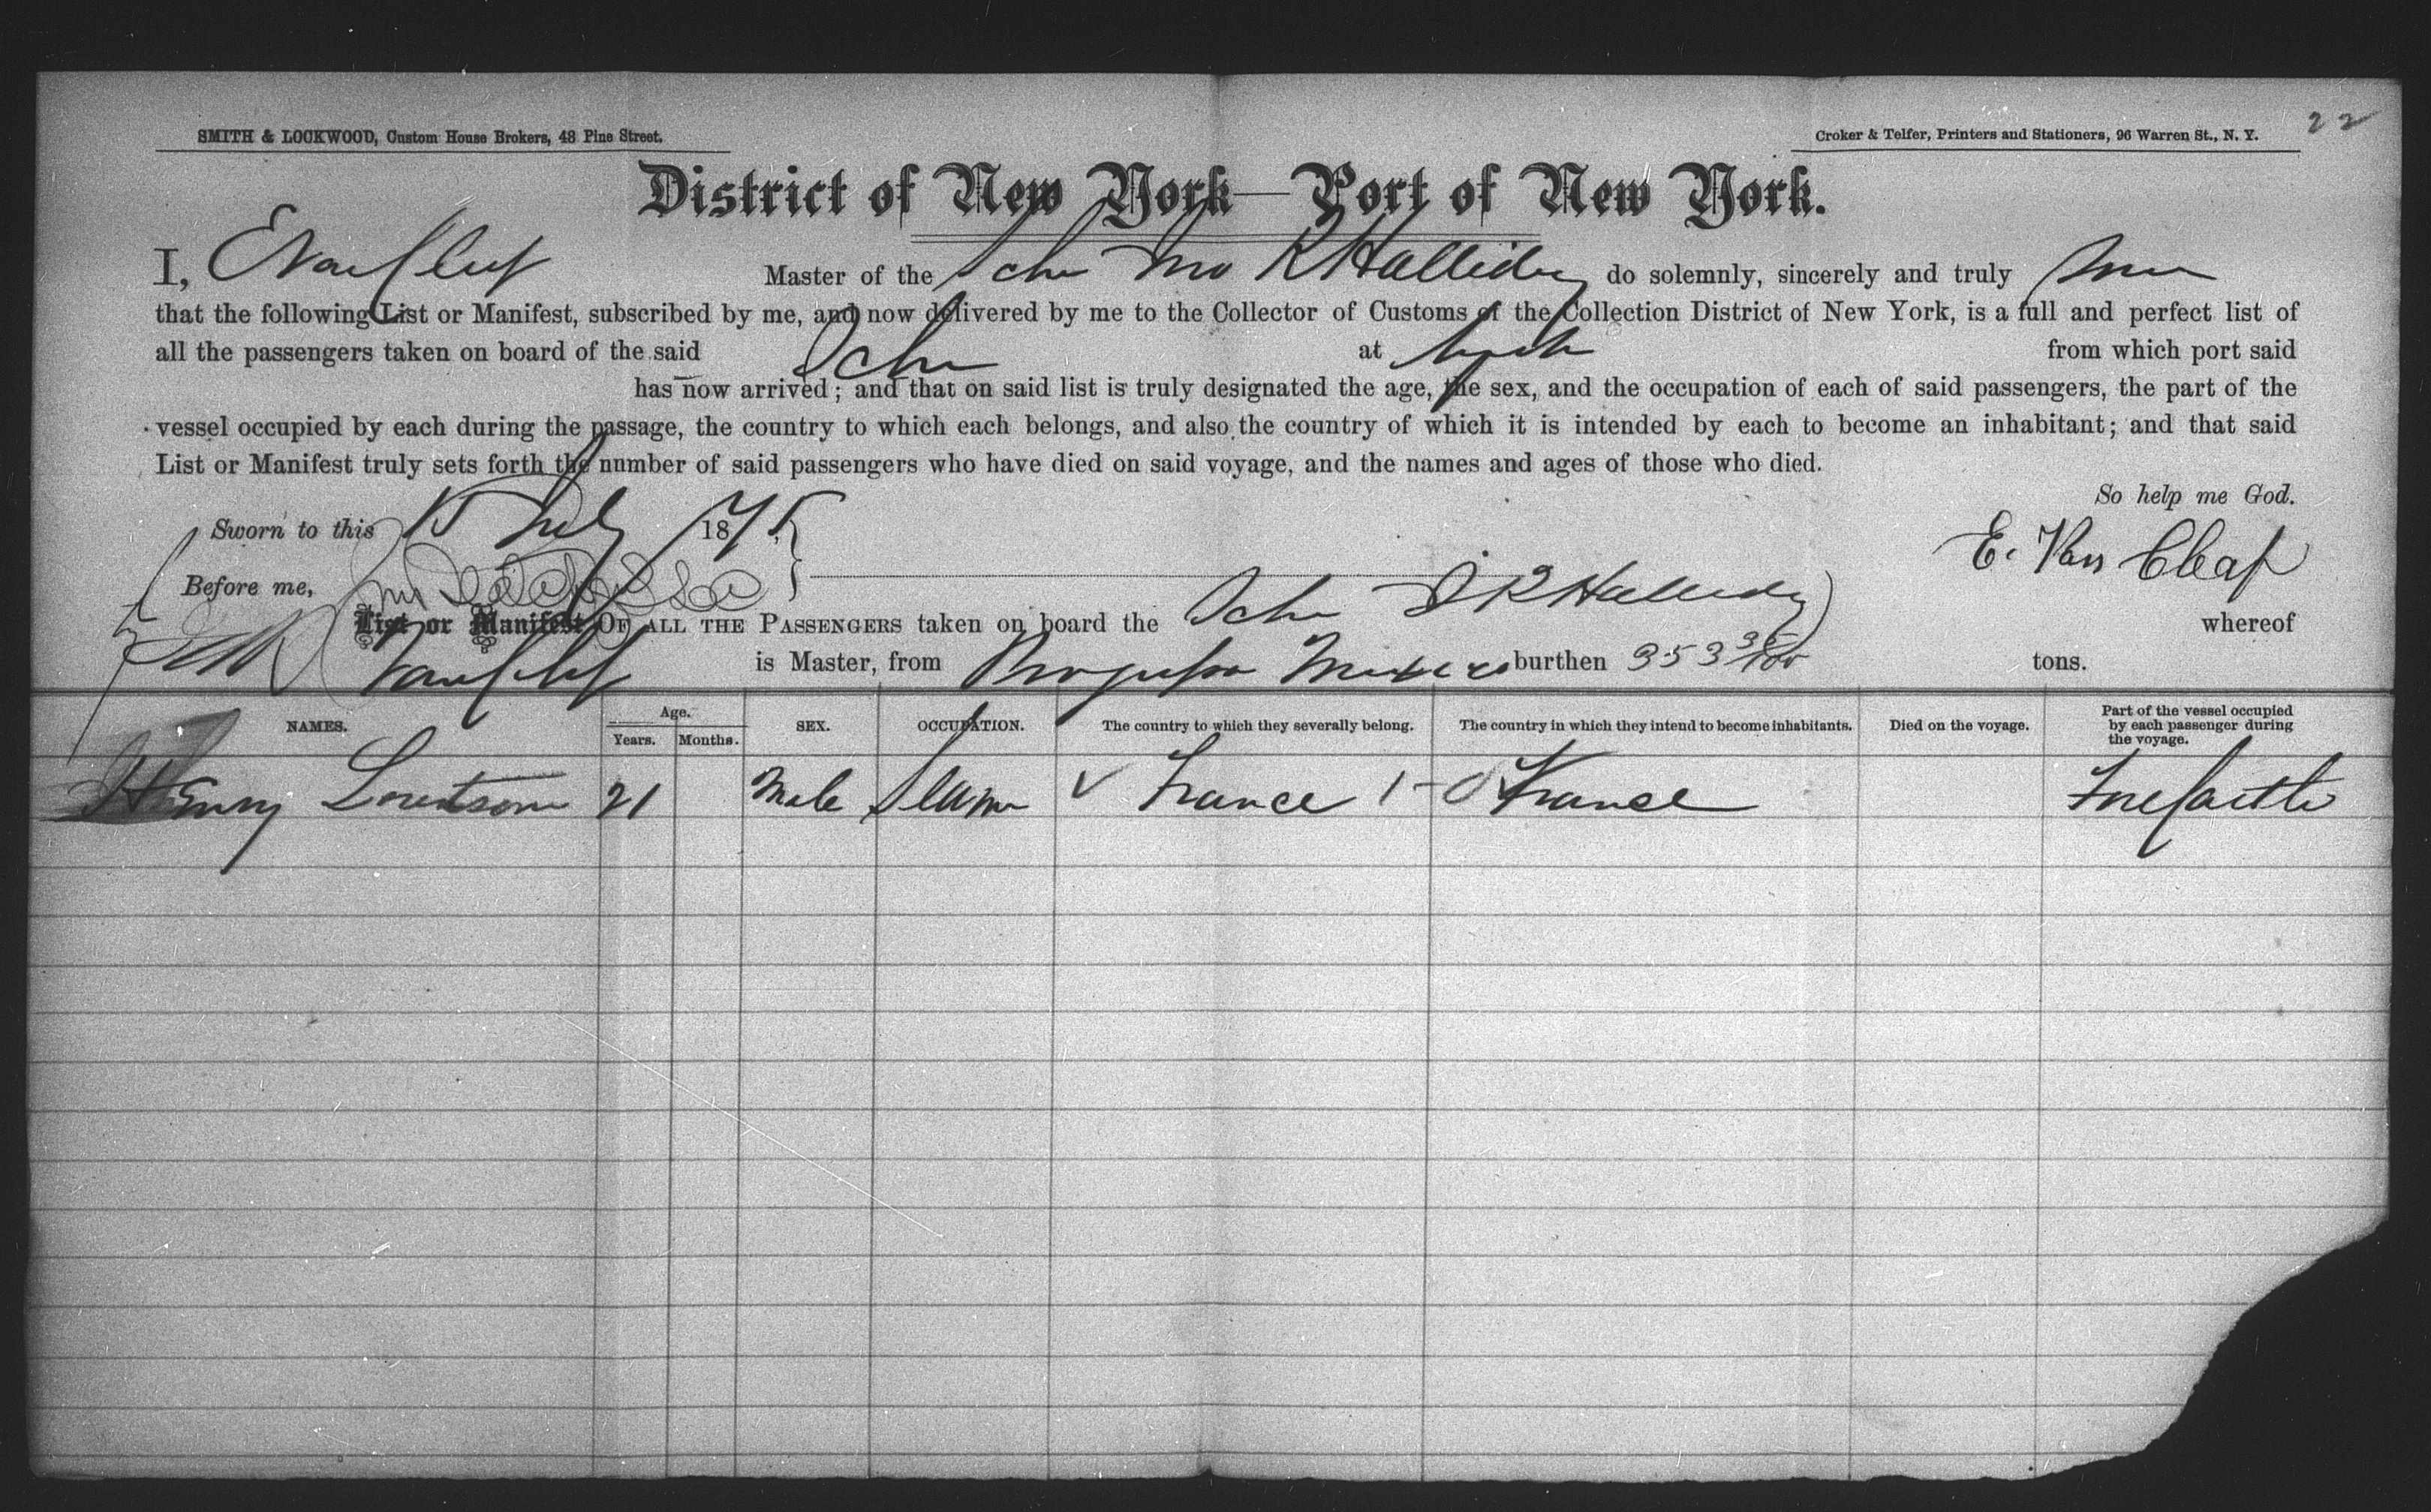 22
SMITH & LOCKWOOD, Custom House Brokers, 48 Pine Street.
Croker & Telfer, Printers and Stationers, 96 Warren St., N. Y.
District of New York—Port of New York.
I, E Van Cleaf Master of the Schr R Halliday do solemnly, sincerely and truly
that the following List or Manifest, subscribed by me, and now delivered by me to the Collector of Customs of the Collection District of New York, is a full and perfect list of
all the passengers taken on board of the said Schr at from which port said
has now arrived; and that on said list is truly designated the age, the sex, and the occupation of each of said passengers, the part of the
vessel occupied by each during the passage, the country to which each belongs, and also the country of which it is intended by each to become an inhabitant; and that said
List or Manifest truly sets forth the number of said passengers who have died on said voyage, and the names and ages of those who died.
So help me God.
Sworn to this 15 July 1875,
E. Van Cleaf
Before me,
List or Manifest OF ALL THE PASSENGERS taken on board the Schr R Halliday whereof
Van Cleaf is Master, from burthen 353 35/100 tons.
NAMES. Age. Years. Months. SEX. OCCUPATION. The country to which they severally belong. The country in which they intend to become inhabitants. Died on the voyage. Part of the vessel occupied by each passenger during the voyage.
Henry 21 Male Seaman France France Forecastle